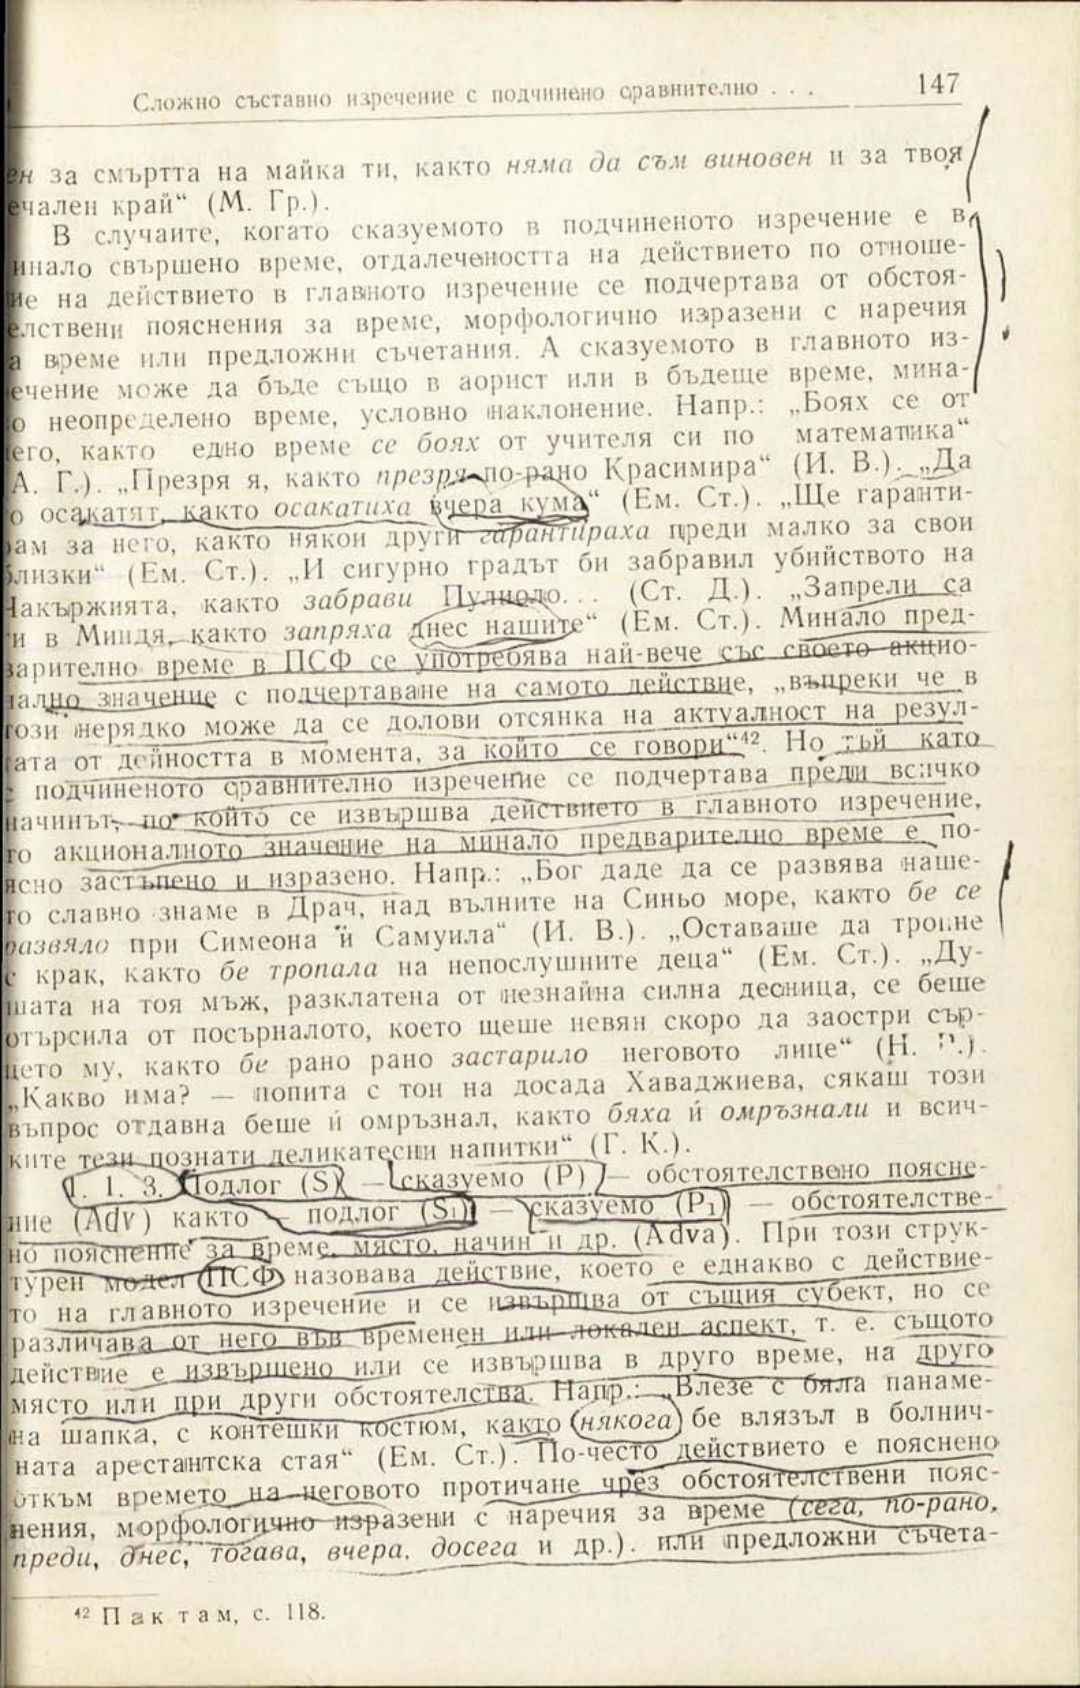 Сложно съставно изречение с подчинено сравнително . . . 147
ен за смъртта на майка ти, както няма да съм виновен и за твоя
ечален край“ (М. Гр.).
В случаите, когато сказуемото в подчиненото изречение е в
инало свършено време, отдалечеността на действието по отноше-
ие на действието в главното изречение се подчертава от обстоя-
елствени пояснения за време, морфологично изразени с наречия
а време или предложни съчетания. А сказуемото в главното из-
ечение може да бъде също в аорист или в бъдеще време, мина-
о неопределено време, условно наклонение. Напр.: „Боях се от
его, както едно време се боях от учителя си по математика“
А. Г.). „Презря я, както презря по-рано Красимира“ (И. В.). „Да
о осакатят, както осакатиха вчера кума“ (Ем. Ст.). „Ще гаранти-
ам за него, както някои други гарантираха преди малко за свои
лизки“ (Ем. Ст.). „И сигурно градът би забравил убийството на
акържията, както забрави Пулиоло... (Ст. Д.). „Запрели са
и в Миндя, както запряха днес нашите“ (Ем. Ст.). Минало пред-
варително време в ПСФ се употребява най-вече със своето акцио-
нално значение с подчертаване на самото действие, „въпреки че в
този нерядко може да се долови отсянка на актуалност на резул-
тата от дейността в момента, за който се говори“⁴². Но тъй като
с подчиненото сравнително изречение се подчертава преди всичко
начинът, по който се извършва действието в главното изречение,
то акционалното значение на минало предварително време е по-
ясно застъпено и изразено. Напр.: „Бог даде да се развява наше-
то славно знаме в Драч, над вълните на Синьо море, както бе се
развяло при Симеона и Самуила“ (И. В.). „Оставаше да тропне
с крак, както бе тропала на непослушните деца“ (Ем. Ст.). „Ду-
шата на тоя мъж, разклатена от незнайна силна десница, се беше
отърсила от посърналото, което щеше невян скоро да заостри сър-
цето му, както бе рано рано застарило неговото лице“ (Н. Р.).
„Какво има? — попита с тон на досада Хаваджиева, сякаш този
въпрос отдавна беше ѝ омръзнал, както бяха ѝ омръзнали и всич-
ките тези познати деликатесни напитки“ (Г. К.).
1. 1. 3. Подлог (S) — сказуемо (P) — обстоятелствено поясне-
ние (Adv) както — подлог (S₁) — сказуемо (P₁) — обстоятелстве-
но пояснение за време, място, начин и др. (Adva). При този струк-
турен модел ПСФ назовава действие, което е еднакво с действие-
то на главното изречение и се извършва от същия субект, но се
различава от него във временен или локален аспект, т. е. същото
действие е извършено или се извършва в друго време, на друго
място или при други обстоятелства. Напр.: „Влезе с бяла панаме-
на шапка, с контешки костюм, както някога бе влязъл в болнич-
ната арестантска стая“ (Ем. Ст.). По-често действието е пояснено
откъм времето на неговото протичане чрез обстоятелствени пояс-
нения, морфологично изразени с наречия за време (сега, по-рано,
преди, днес, тогава, вчера, досега и др.). или предложни съчета-
⁴² Пак там, с. 118.